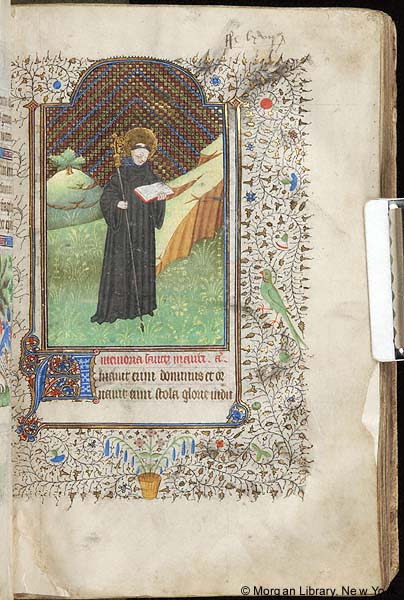 memoria sancti mauri. a.
Amavit eum dominus et or
navit eum stola glorie indu
© Morgan Library, New Yo